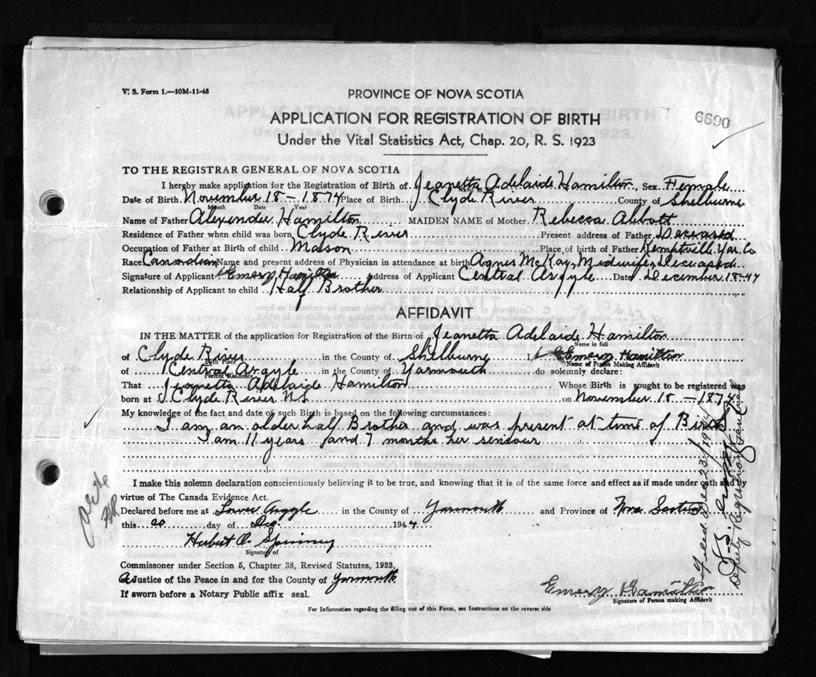 V. S. Form 1.—10M-11-43
PROVINCE OF NOVA SCOTIA
6690
APPLICATION FOR REGISTRATION OF BIRTH
Under the Vital Statistics Act, Chap. 20, R. S. 1923
TO THE REGISTRAR GENERAL OF NOVA SCOTIA
I hereby make application for the Registration of Birth of Jeanetta Adelaide Hamilton, Sex Female
Date of Birth November 18 - 1874 Place of Birth Clyde River County of Shelburne
Month Date Year
Name of Father Alexender Hamilton MAIDEN NAME of Mother Rebecca Abbott
Residence of Father when child was born Clyde River Present address of Father Deceased
Occupation of Father at Birth of child Mason Place of birth of Father Kemptville Yar. Co
Race Canadian Name and present address of Physician in attendance at birth Agnes McKay, Midwife, Deceased
Signature of Applicant Emery Hamilton address of Applicant Central Argyle Date December 18-44
Relationship of Applicant to child Half Brother
AFFIDAVIT
IN THE MATTER of the application for Registration of the Birth of Jeanetta Adelaide Hamilton
Name in full
of Clyde River in the County of Shelburne I, Emery Hamilton
Name of Person Making Affidavit
of Central Argyle in the County of Yarmouth do solemnly declare:
Present Residence
That Jeanetta Adelaide Hamilton Whose Birth is sought to be registered was
born at Clyde River N.S. on November 18 - 1874
My knowledge of the fact and date of such Birth is based on the following circumstances:
I am an older half Brother and was present at time of Birth
I am 11 years and 7 months her seniour
I make this solemn declaration conscientiously believing it to be true, and knowing that it is of the same force and effect as if made under oath and by
virtue of The Canada Evidence Act.
Declared before me at Lower Argyle in the County of Yarmouth and Province of Nova Scotia
this 20 day of Dec. 1944
Hubert A. Spinney
Signature of
Commissioner under Section 5, Chapter 38, Revised Statutes, 1923,
A Justice of the Peace in and for the County of Yarmouth
If sworn before a Notary Public affix seal.
Emery Hamilton
Signature of Person making Affidavit
For Information regarding the filling out of this Form, see Instructions on the reverse side
Filed Dec 23/1944
Deputy Registrar General